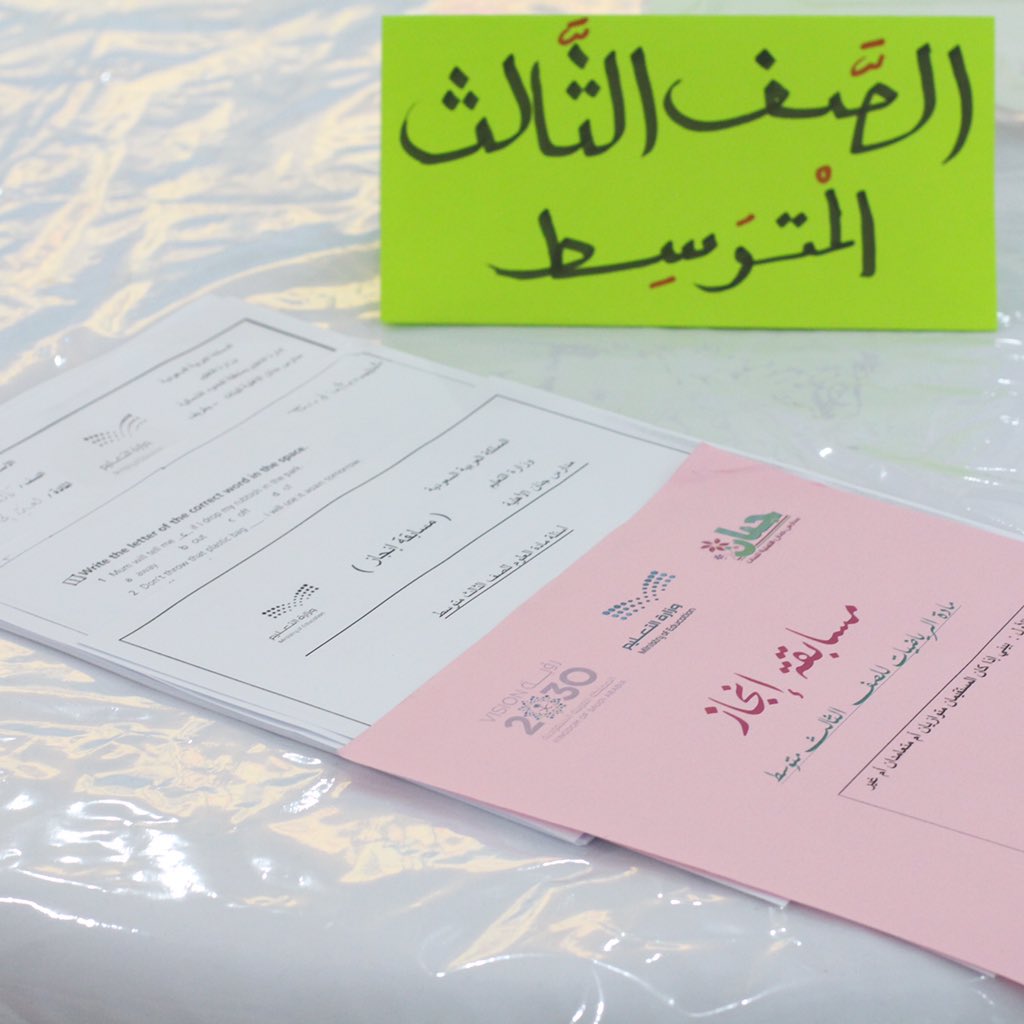 الصَّف الثَّالث
الْمتوَسِط
المملكة العربية السعودية
وزارة التعليم
Write the letter of the correct word in the space.
1 Mum will tell me c if I drop my rubbish in the park.
a away b out c off d of
2 Don't throw that plastic bag ___ I will use it again
المملكة العربية السعودية
وزارة التعليم
مدارس جمان الأهلية
( مسابقة إنجاز )
أسئلة مادة العلوم للصف الثالث متوسط
وزارة التعليم
Ministry of Education
جمان
وزارة التعليم
Ministry of Education
رؤية
VISION
2030
المملكة العربية السعودية
KINGDOM OF SAUDI ARABIA
مسابقة إنجاز
مادة الرياضيات للصف الثالث متوسط
بيني إذا كان المستقيمان متوازيان أم متعامدان أم غير